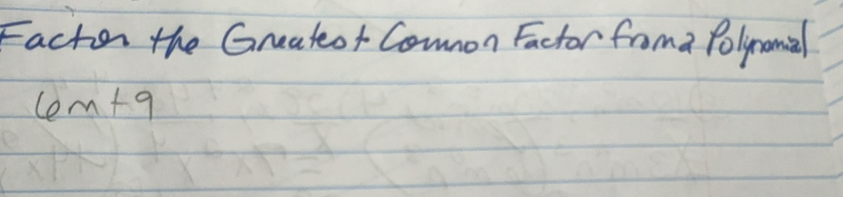 Factor the Greatest Common Factor from a Polynomial
6m+9